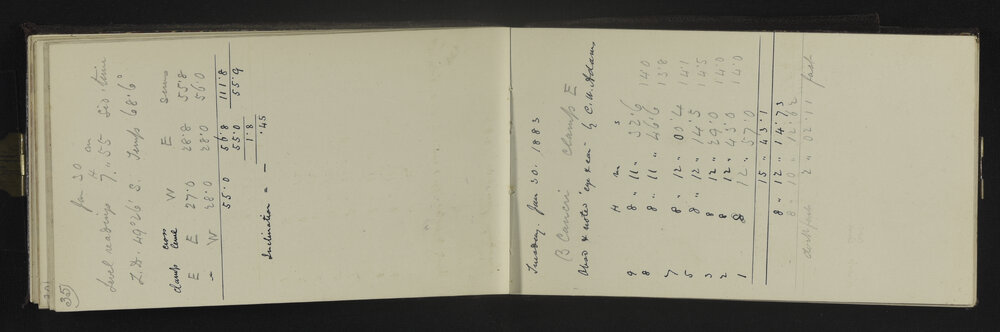 35
Jan 30
Level readings 7 H 55 m Sid. time
Z.D. 49°26' S. Temp 68.6°
clamp cross level W E sums
E E 27.0 28.8 55.8
" W 28.0 28.0 56.0
55.0 56.8 111.8
55.0 55.9
1.8
Inclination = - .45
Tuesday Jan 30. 1883
β Cancri clamp E
Obsd & noted eye & ear by C.W. Adams
H m s
9 8 " 11 " 32.6 14.0
8 8 " 11 " 46.6 13.8
7 8 " 12 " 00.4 14.1
5 8 " 12 " 14.5 14.5
3 8 12 " 29.0 14.0
2 8 12 " 43.0 14.0
1 8 12 " 57.0
15 " 43.1
8 " 12 " 14.73
8 " 10 " 12.62
2 " 02.11 fast